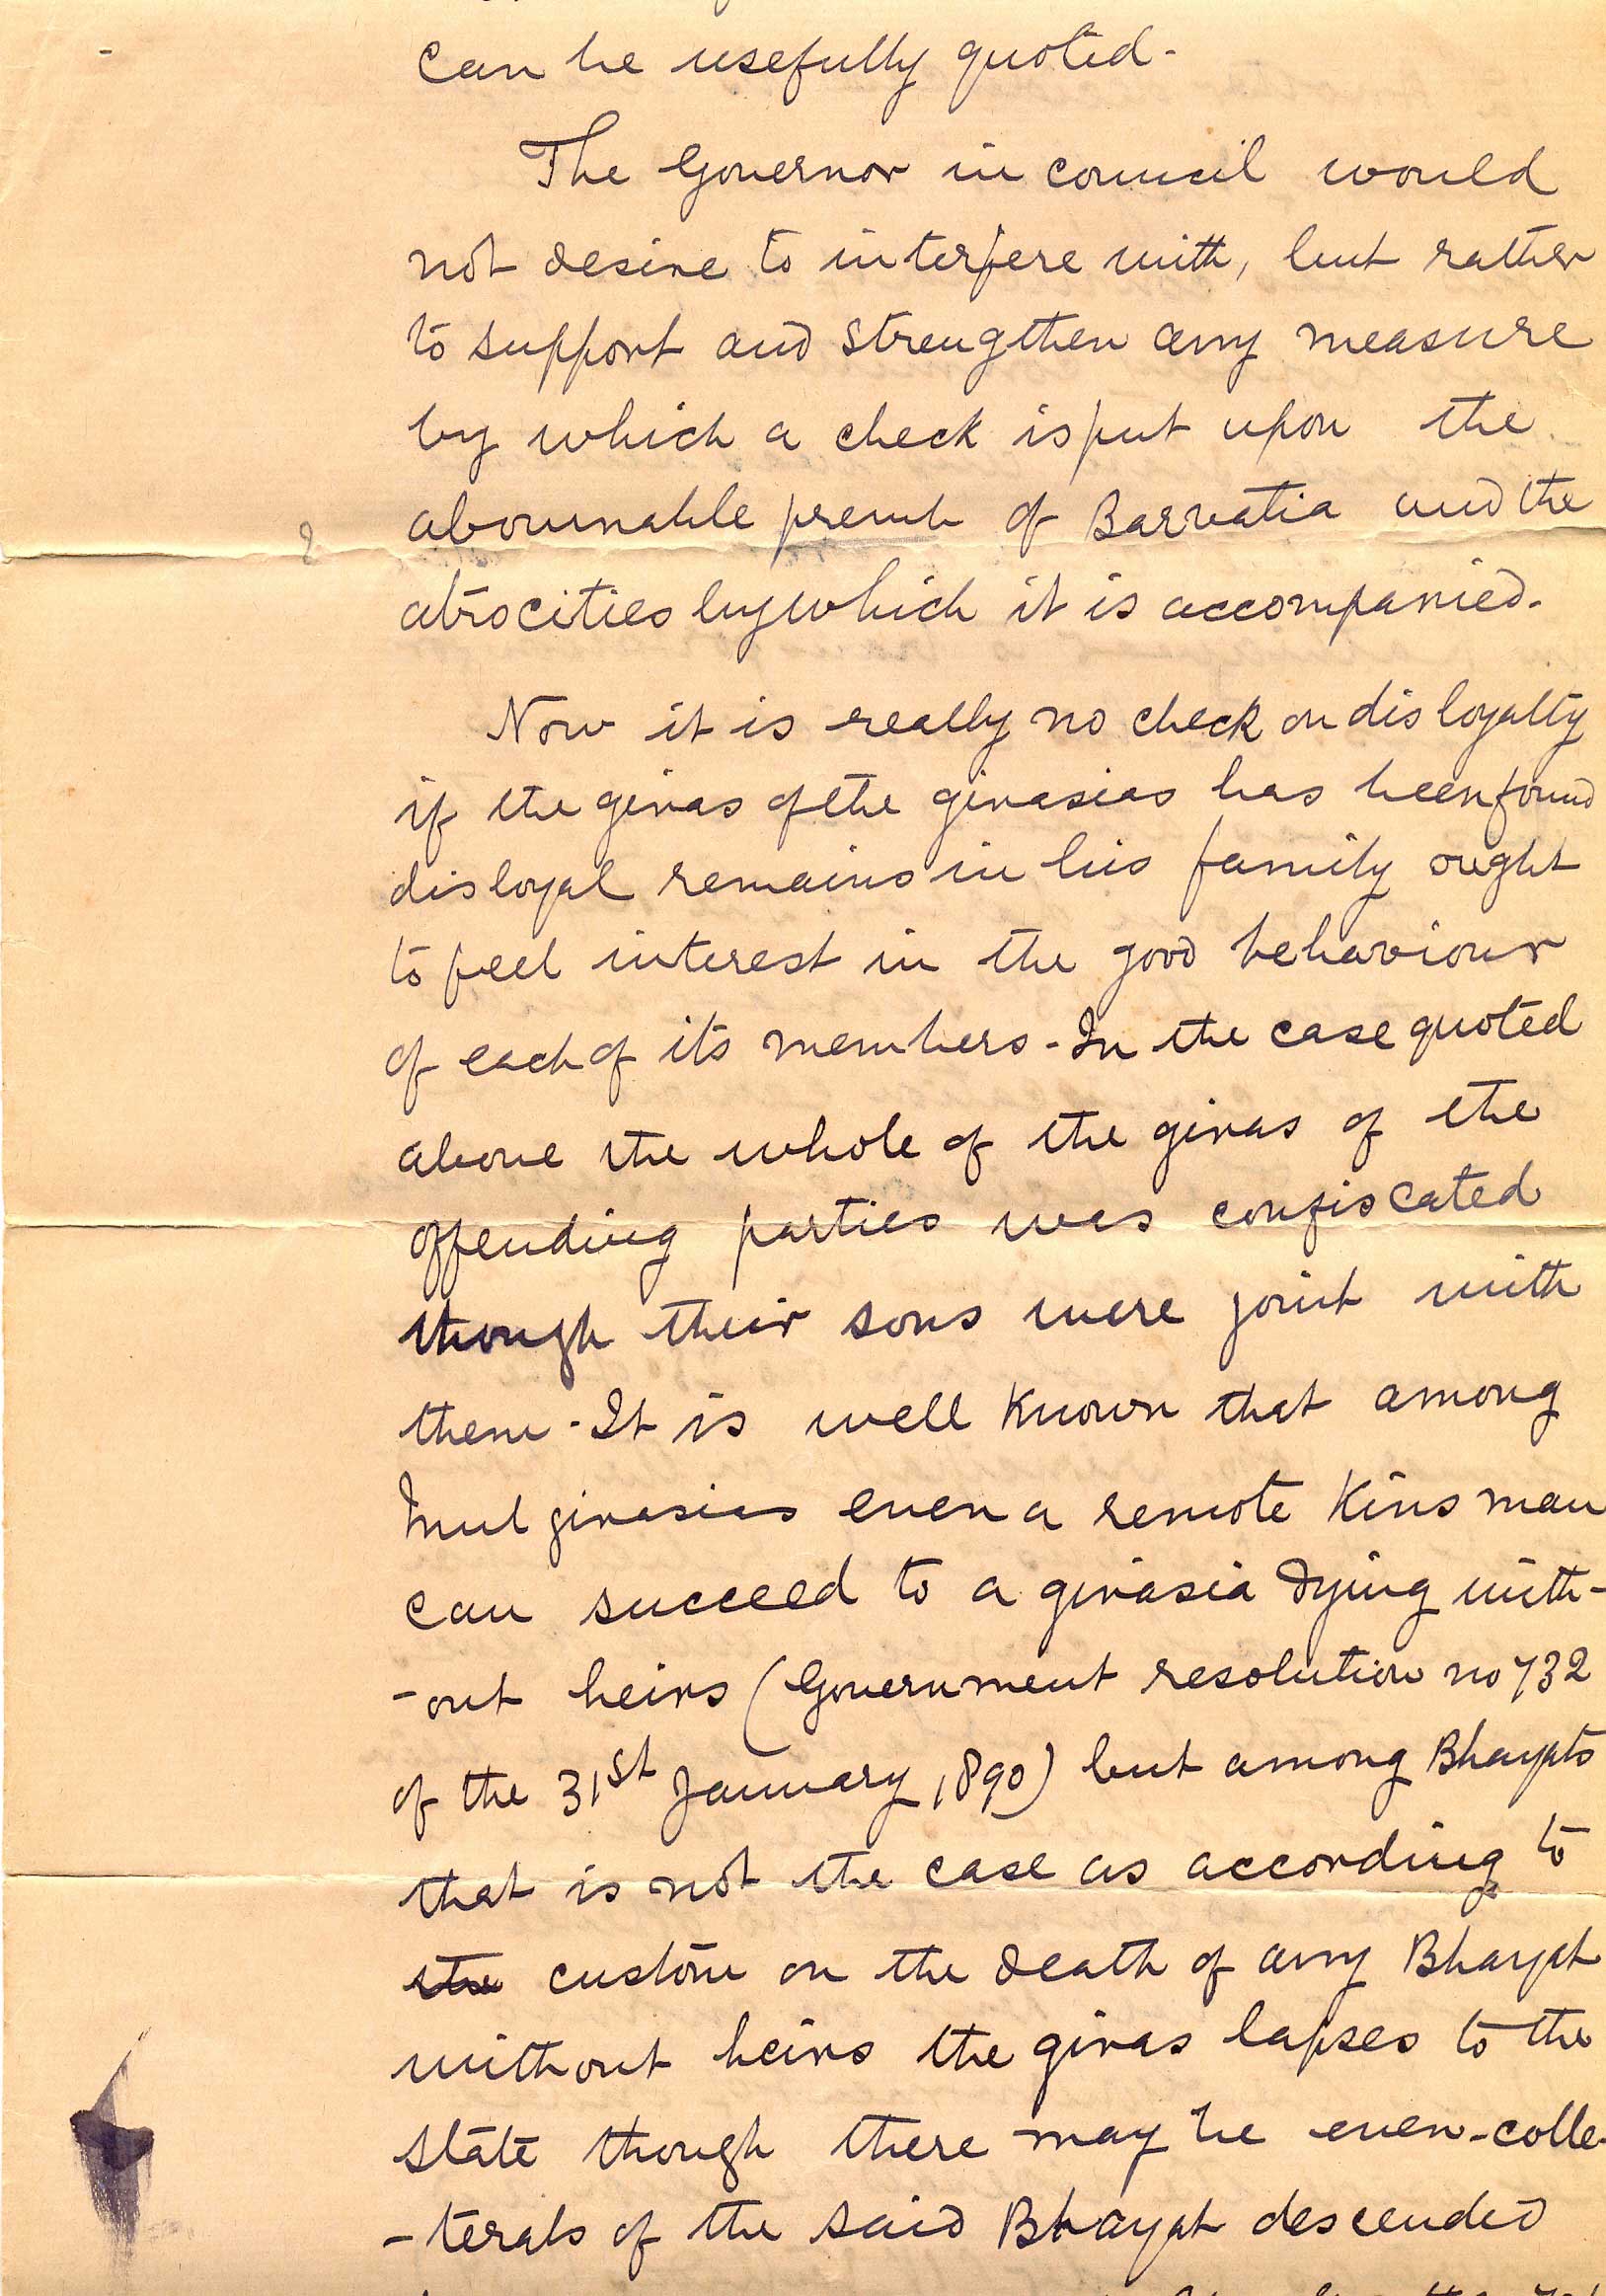 can be usefully quoted-
The Governor in council would
not desire to interfere with, but rather
to support and strengthen any measure
by which a check is put upon the
abominable of Barvatia and the
atrocities by which it is accompanied.
Now it is really no check on disloyalty
if the giras of the girasias has been found
disloyal remains in his family ought
to feel interest in the good behaviour
of each of its members - In the case quoted
above the whole of the giras of the
offending parties was confiscated
though their sons were joint with
them - It is well known that among
Mul girasias even a remote Kins man
can succeed to a girasia dying with-
-out heirs (Government resolution no 732
of the 31st January, 1890) but among Bhayats
that is not the case as according to
the custom on the death of any Bhayat
without heirs the giras lapses to the
state though there may be even-colle-
-terals of the said Bhayat descended